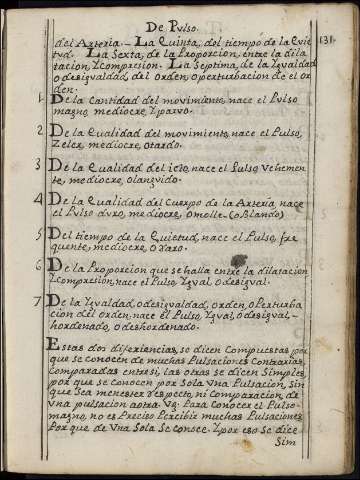 De Pulso.
131.
del Arteria. - La Quinta, del tiempo de la Quie
tud. La Sexta, de la Proporcion, entre la dila
tacion, Ycompresion. La Septima, de la Ygvaldad
o desigvaldad, del Orden, o perturbacion de el or
den.
1 De la Cantidad del movimiento, nace el Pulso
magno, mediocre, Yparvo.
2 De la Qualidad del movimiento, nace el Pulso,
Zeler, mediocre, otardo.
3 De la Qualidad del icto, nace el Pulso Vehemen
te, mediocre, Olangvido.
4 De la Qualidad del Cuerpo de la Arteria, nace
el Pulso duro, mediocre, Omolle - (o Blando)
5 Del tiempo de la Quietud, nace el Pulso, fre
quente, mediocre, O raro.
6 De la Proporcion que se halla entre la dilatacion
Ycompresion, nace el Pulso, Ygval, O desigval.
7 De la Ygvaldad, O desigvaldad, orden, O Perturba
cion del orden, nace el Pulso, Ygval, O desigval -
hordenado, o deshordenado.
Estas dos diferiencias, se dicen Compuestas, por
que se conocen de muchas Pulsaciones Contrarias,
Comparadas entresi, las otras se dicen Simples,
por que se Conocen por Sola Vna Pulsacion, Sin
que Sea menester respecto, ni Comparacion, de
Vna pulsacion aotra. Vg: Para Conocer el Pulso
magno, no es Preciso Percibir muchas Pulsaciones
Por que de Vna Sola Se Conoce. Y por eso Se dice
Sim